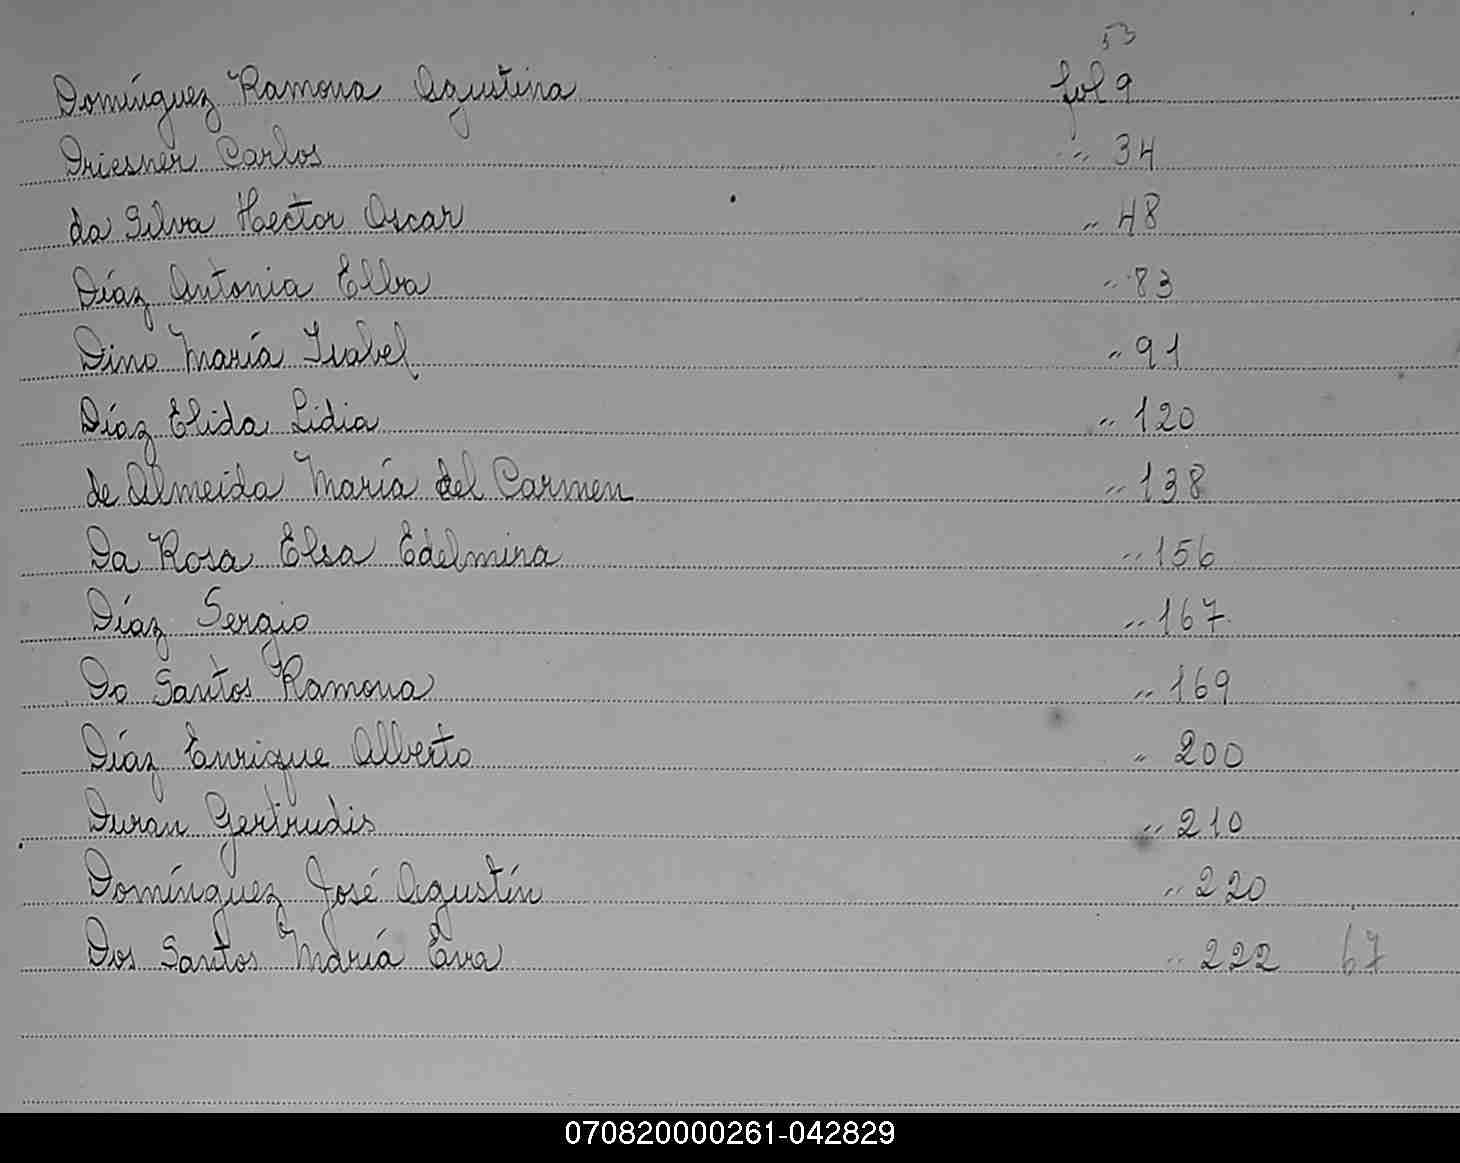 53
Domínguez Ramona Agustina fol 9
Driesner Carlos " 34
da Silva Hector Oscar " 48
Díaz Antonia Elba " 83
Dino María Isabel " 91
Díaz Elida Lidia " 120
de Almeida María del Carmen " 138
Da Rosa Elsa Edelmira " 156
Díaz Sergio " 167
Do Santos Ramona " 169
Díaz Enrique Alberto " 200
Duran Gertrudis " 210
Domínguez José Agustín " 220
Dos Santos María Eva " 222 67
070820000261-042829